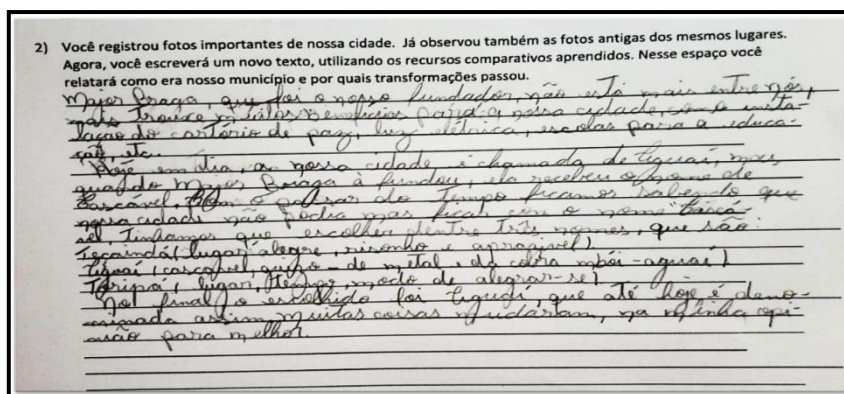 2) Você registrou fotos importantes de nossa cidade. Já observou também as fotos antigas dos mesmos lugares.
Agora, você escreverá um novo texto, utilizando os recursos comparativos aprendidos. Nesse espaço você
relatará como era nosso município e por quais transformações passou.
Major Braga, que foi o nosso fundador, não está mais entre nós,
mais trouxe muitos benefícios para a nossa cidade, como insta-
lação do cartório de paz, luz elétrica, escolas para a educa-
ção, etc.
Hoje em dia, a nossa cidade, é chamada de Aguaí, mas
quando Major Braga à fundou, ela recebeu o nome de
Cascável. Com o passar do tempo ficamos sabendo que
nossa cidade não podia mas ficar com o nome "Cascá-
vel, Tinhamos que escolher dentre três nomes, que são:
Teçaindá (lugar alegre, risonho e aprazível)
Aguaí (cascavel, guizo-de metal, da cobra mbói-aguaí)
Toripá (lugar, tempo, modo de alegrar-se)
No final o escolhido foi Aguaí, que até hoje é deno-
minada assim, muitas coisas mudaram, na minha opi-
nião para melhor.